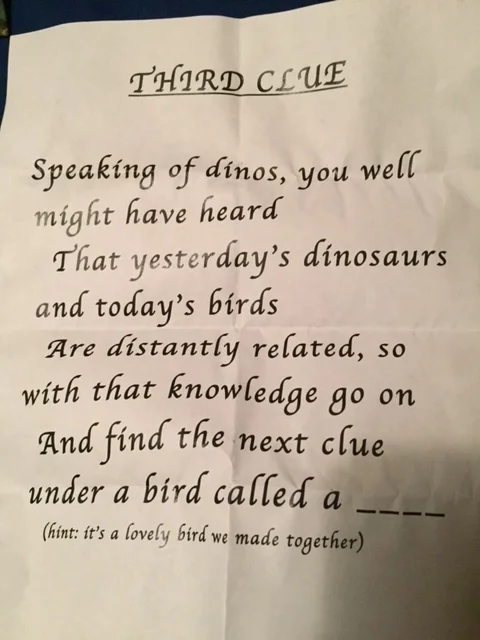 THIRD CLUE
Speaking of dinos, you well
might have heard
That yesterday's dinosaurs
and today's birds
Are distantly related, so
with that knowledge go on
And find the next clue
under a bird called a ____
(hint: it's a lovely bird we made together)